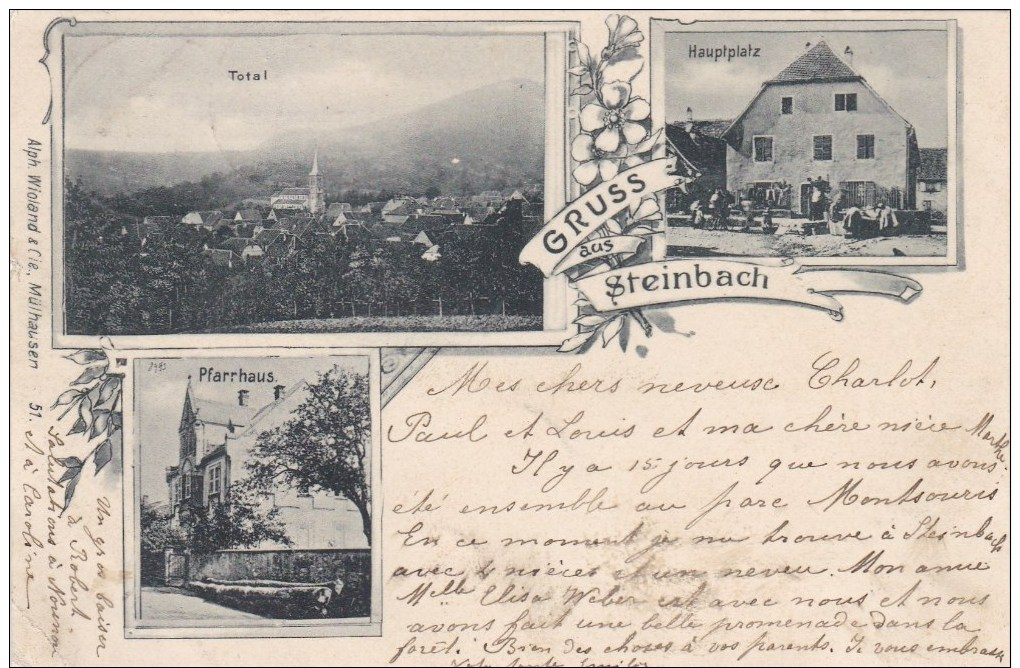 Total
Hauptplatz
GRUSS
aus
Steinbach
Pfarrhaus.
Alph Wioland & Cie., Mülhausen 51.
Mes chers neveux Charlot,
Paul et Louis et ma chère nièce Marthe.
Il y a 15 jours que nous avons
été ensemble au parc Montsouris
En ce moment je me trouve à Steinbach
avec 4 nièces et un neveu. Mon amie
Mlle Elisa Weber est avec nous et nous
avons fait une belle promenade dans la
forêt. Bien des choses à vos parents. Je vous embrasse
Votre tante
Un gros baiser
à Robert
Salutations à
à Caroline